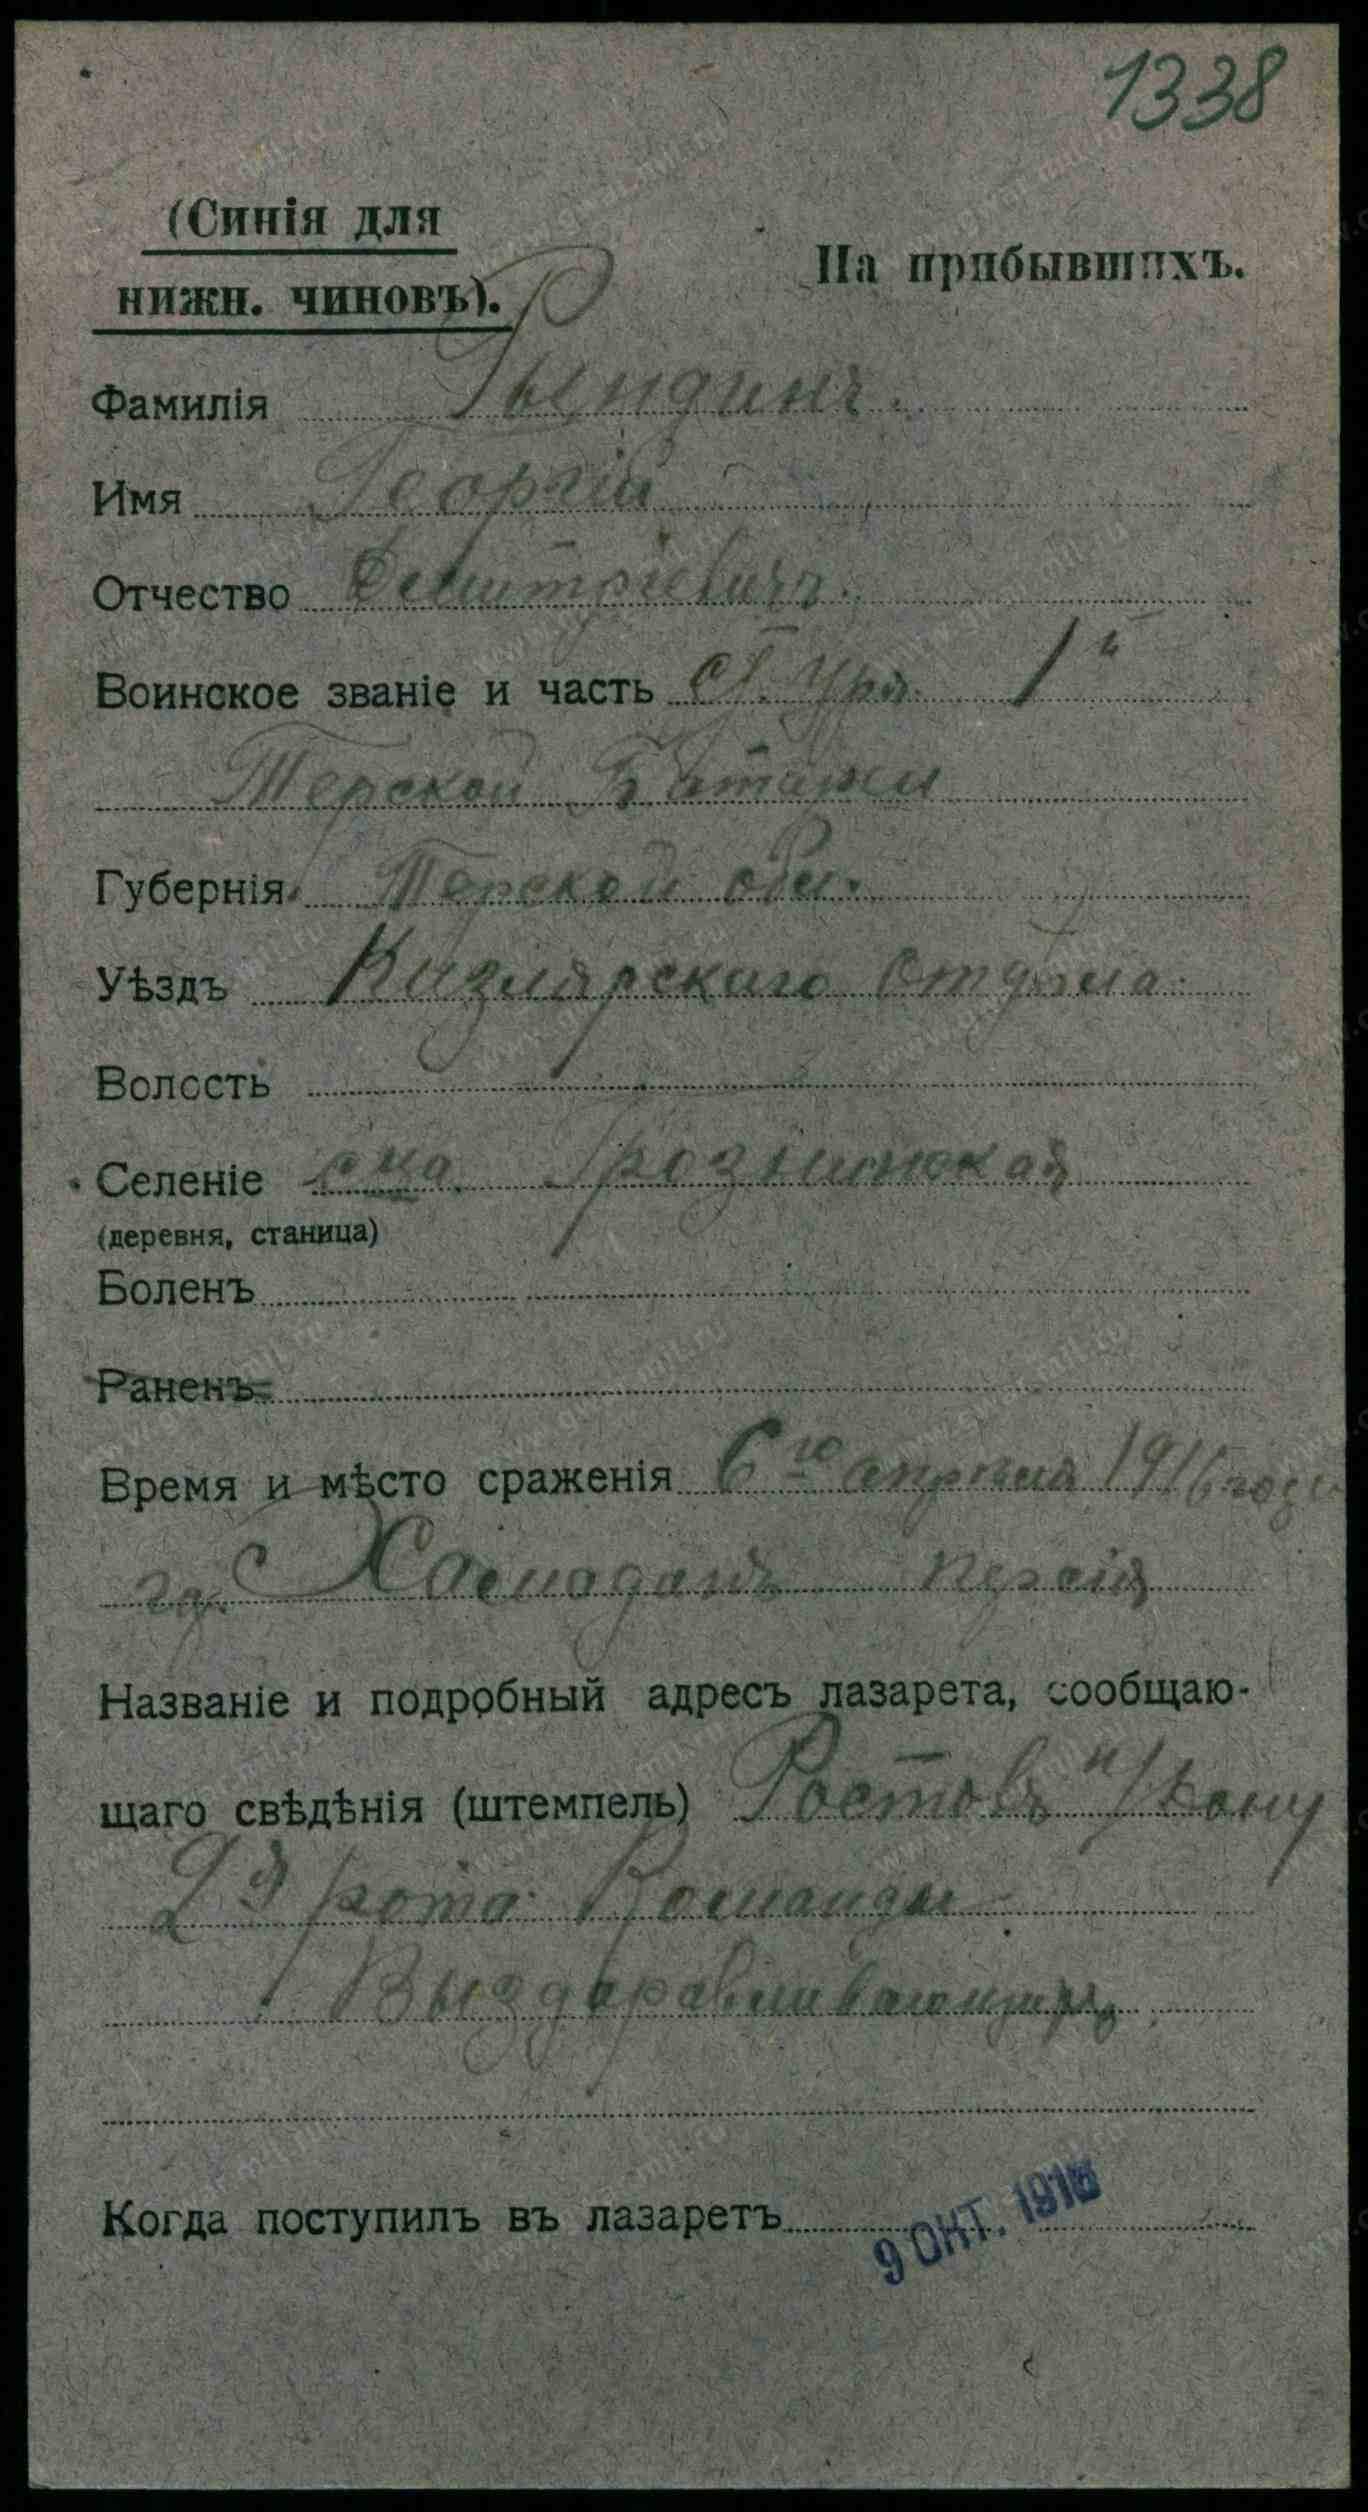 1338
(Синія для
нижн. чиновъ).
На прибывшихъ.
Фамилія Рындинъ.
Имя Георгій
Отчество Дмитріевичъ.
Воинское званіе и часть ст. Уря. 1й
Терской Батареи
Губернія Терской обл.
Уѣздъ Кизлярскаго отдѣла
Волость
Селеніе ст-ца Грозненская
(деревня, станица)
Боленъ
Раненъ
Время и мѣсто сраженія 6го апреля 1916 года
гор. Хамаданъ персія
Названіе и подробный адресъ лазарета, сообщаю-
щаго свѣдѣнія (штемпель) Ростовъ н/Дону
2я рота Команды
Выздаравливающихъ
Когда поступилъ въ лазаретъ 9 ОКТ. 1916